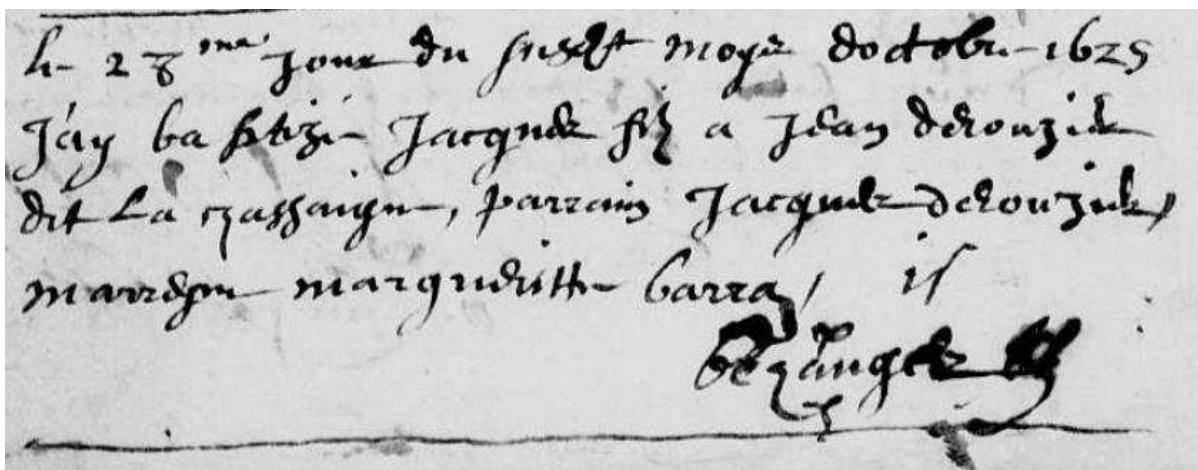 le 28me jour du susdt moys doctobre 1625
Jay baptize Jacques filz a Jean derouziers
dit La chassaigne, parrain Jacques derouziers,
marrayne margueritte barra,